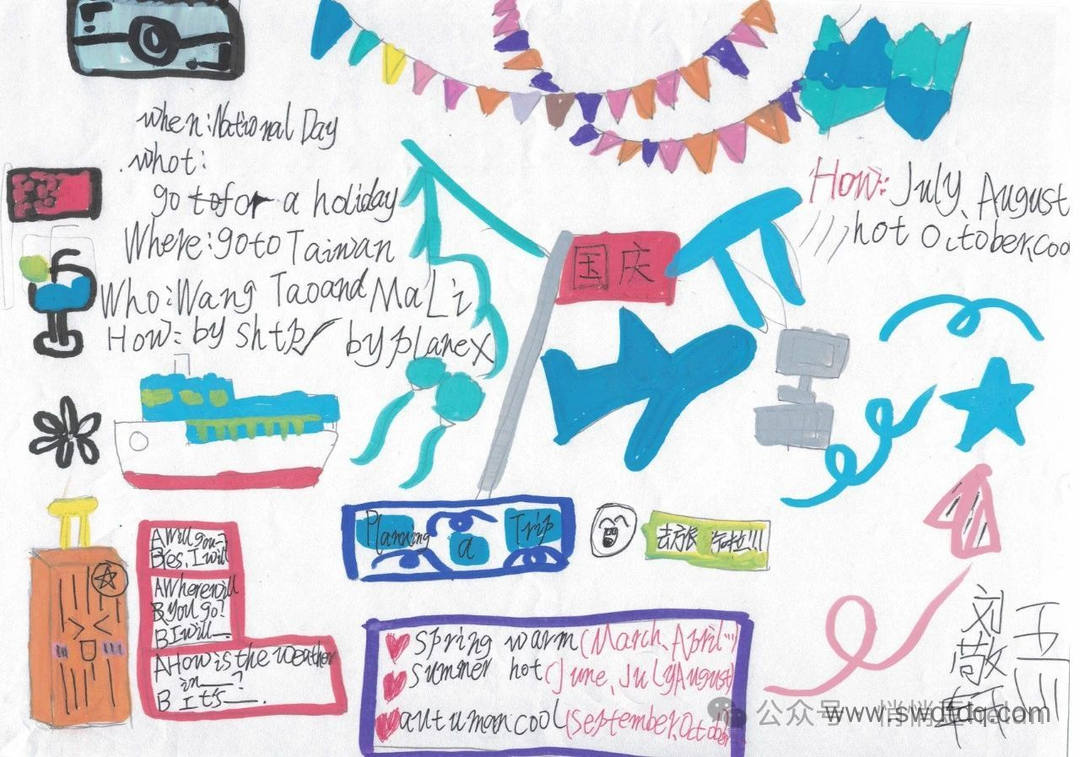 when:National Day
what:
go to for a holiday
Where:goto Taiwan
Who:Wang Taoand Ma Li
How:by ship✓ by planex
How: July、August
hot October coo
国庆
Planning a Trip
去旅行啦!!!
A Will you~?
B Yes, I will
A Where will
B you go?
B I will__.
A How is the weather
in__?
B It's__.
spring warm(March、April…)
summer hot(June、JulyAugust)
autuman cool(September、October
刘敬轩
公众号
www.swdtdq.com